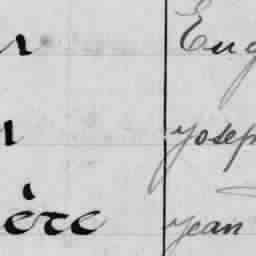 r Eug
r Joseph
ère Jean